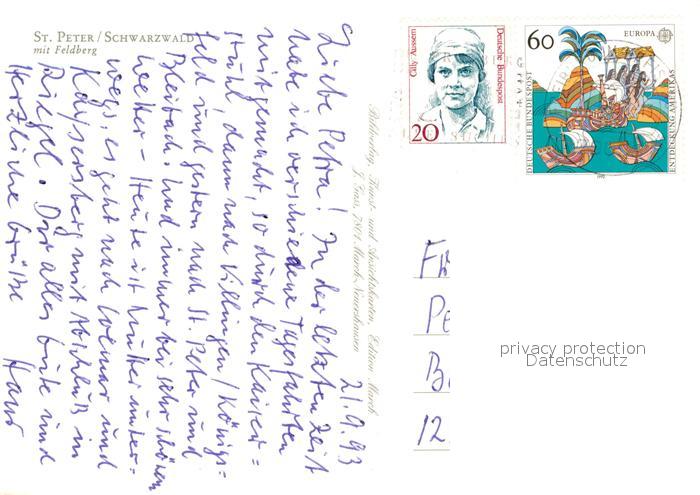 ST. PETER / SCHWARZWALD
mit Feldberg
21.9.93
Liebe Petra! In der letzten Zeit
habe ich verschiedene Tagesfahrten
mitgemacht, so durch den Kaiser=
stuhl, dann nach Villingen / Königs=
feld und gestern nach St. Peter und
Bleibach. Und immer bei sehr schönem
Wetter - Heute ist Mutter unter-
wegs, es geht nach Colmar und
Kaysersberg mit Abschluß in
Riegel. Dir alles Gute und
Herzliche Grüße
Hans
Bilderking, Kunst- und Ansichtskarten, Edition March
7801 March-Neuershausen
Cilly Aussem
Deutsche Bundespost
20
60
EUROPA
DEUTSCHE BUNDESPOST
ENTDECKUNG AMERIKAS
1992
Pe
B
12
privacy protection
Datenschutz